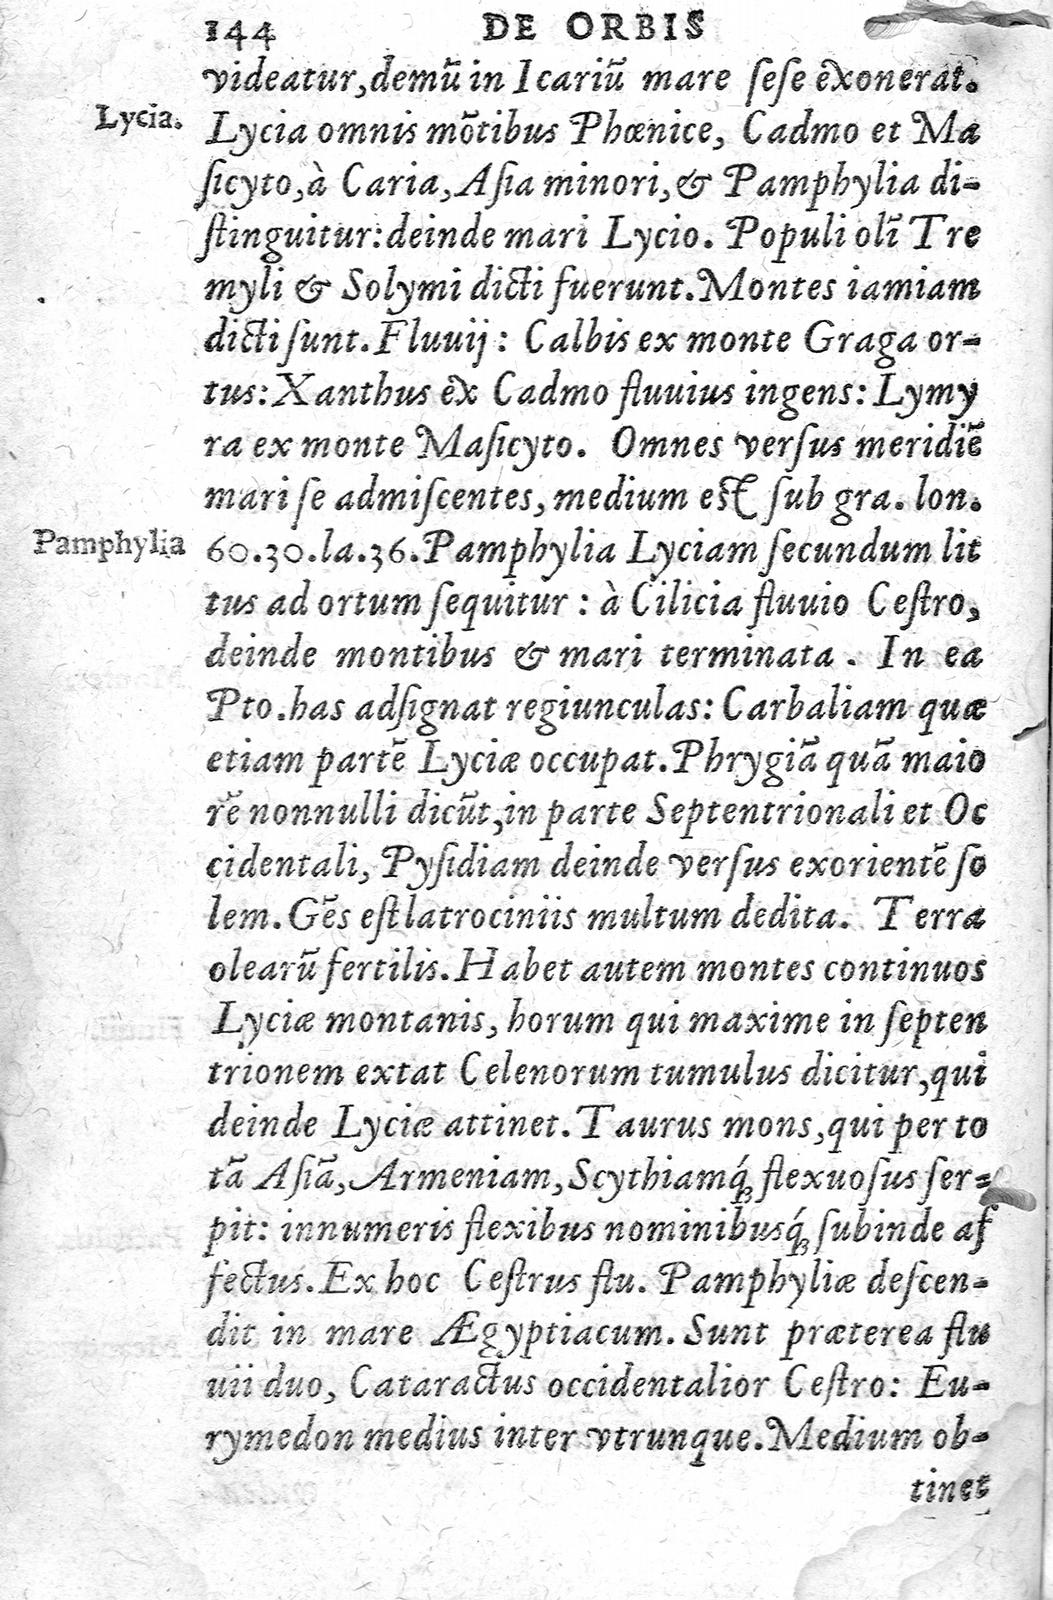 144 DE ORBIS
videatur,demũ in Icariũ mare ſeſe exonerat.
Lycia.
Lycia omnis mõtibus Phœnice, Cadmo et Ma
ſicyto,à Caria,Aſia minori,& Pamphylia di-
ſtinguitur:deinde mari Lycio. Populi olĩ Tre
myli & Solymi dicti fuerunt.Montes iamiam
dicti ſunt.Fluuij: Calbis ex monte Graga or-
tus:Xanthus ex Cadmo fluuius ingens: Lymy
ra ex monte Maſicyto. Omnes verſus meridiẽ
mari ſe admiſcentes, medium eſt ſub gra. lon.
Pamphylia
60.30.la.36.Pamphylia Lyciam ſecundum lit
tus ad ortum ſequitur: à Cilicia fluuio Ceſtro,
deinde montibus & mari terminata. In ea
Pto.has adſignat regiunculas: Carbaliam quæ
etiam partẽ Lyciæ occupat.Phrygiã quã maio
rẽ nonnulli dicũt,in parte Septentrionali et Oc
cidentali, Pyſidiam deinde verſus exorientẽ ſo
lem.Gẽs eſt latrociniis multum dedita. Terra
olearũ fertilis.Habet autem montes continuos
Lyciæ montanis, horum qui maxime in ſepten
trionem extat Celenorum tumulus dicitur,qui
deinde Lyciæ attinet.Taurus mons,qui per to
tã Aſiã,Armeniam,Scythiamq́; flexuoſus ſer-
pit: innumeris flexibus nominibusq́; ſubinde af
fectus.Ex hoc Ceſtrus flu. Pamphyliæ deſcen-
dit in mare Ægyptiacum. Sunt præterea flu
uii duo, Cataractus occidentalior Ceſtro: Eu-
rymedon medius inter vtrunque.Medium ob-
tinet